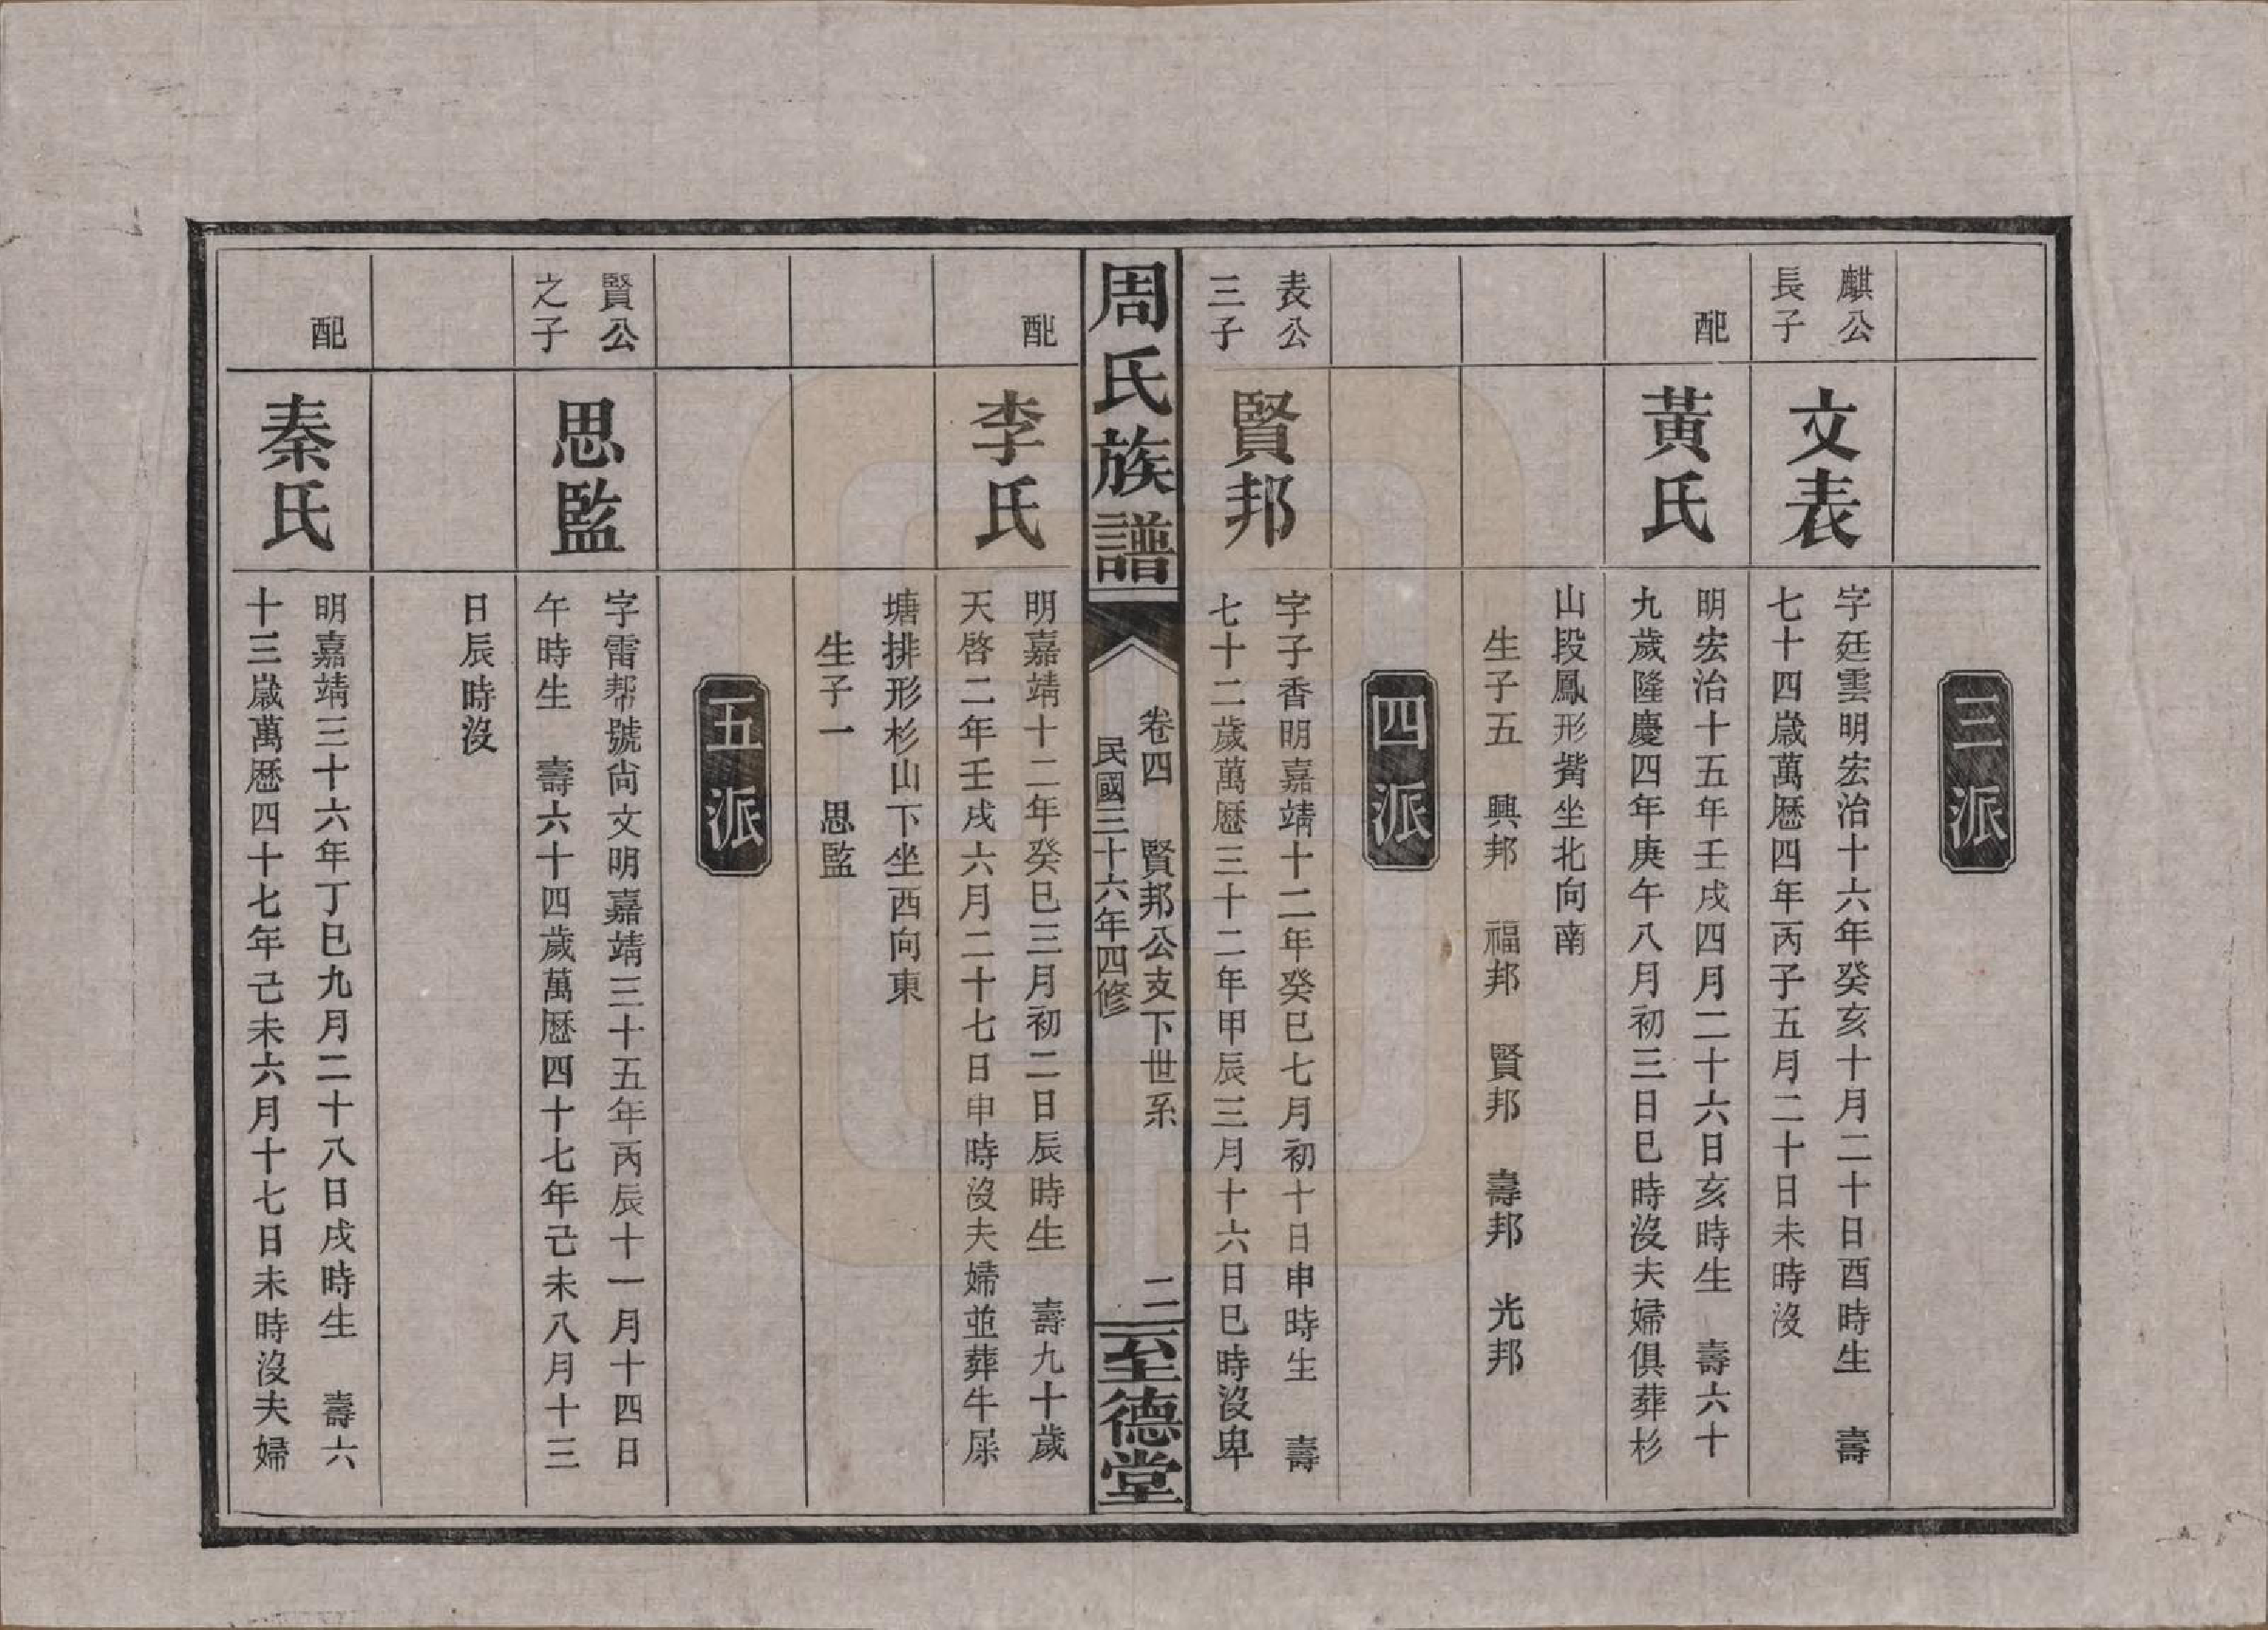 三派
麒公
長子
文表
字廷雲明宏治十六年癸亥十月二十日酉時生　壽
七十四歲萬歷四年丙子五月二十日未時沒
配
黃氏
明宏治十五年壬戌四月二十六日亥時生　壽六十
九歲隆慶四年庚午八月初三日巳時沒夫婦俱葬杉
山段鳳形觜坐北向南
生子五　興邦　福邦　賢邦　壽邦　光邦
四派
表公
三子
賢邦
字子香明嘉靖十二年癸巳七月初十日申時生　壽
七十二歲萬歷三十二年甲辰三月十六日巳時沒卑
周氏族譜
卷四　賢邦公支下世系　二
民國三十六年四修
至德堂
配
李氏
明嘉靖十二年癸巳三月初二日辰時生　壽九十歲
天啓二年壬戌六月二十七日申時沒夫婦並葬牛屎
塘排形杉山下坐西向東
生子一　思監
五派
賢公
之子
思監
字雷帮號尙文明嘉靖三十五年丙辰十一月十四日
午時生　壽六十四歲萬歷四十七年己未八月十三
日辰時沒
配
秦氏
明嘉靖三十六年丁巳九月二十八日戌時生　壽六
十三歲萬歷四十七年己未六月十七日未時沒夫婦